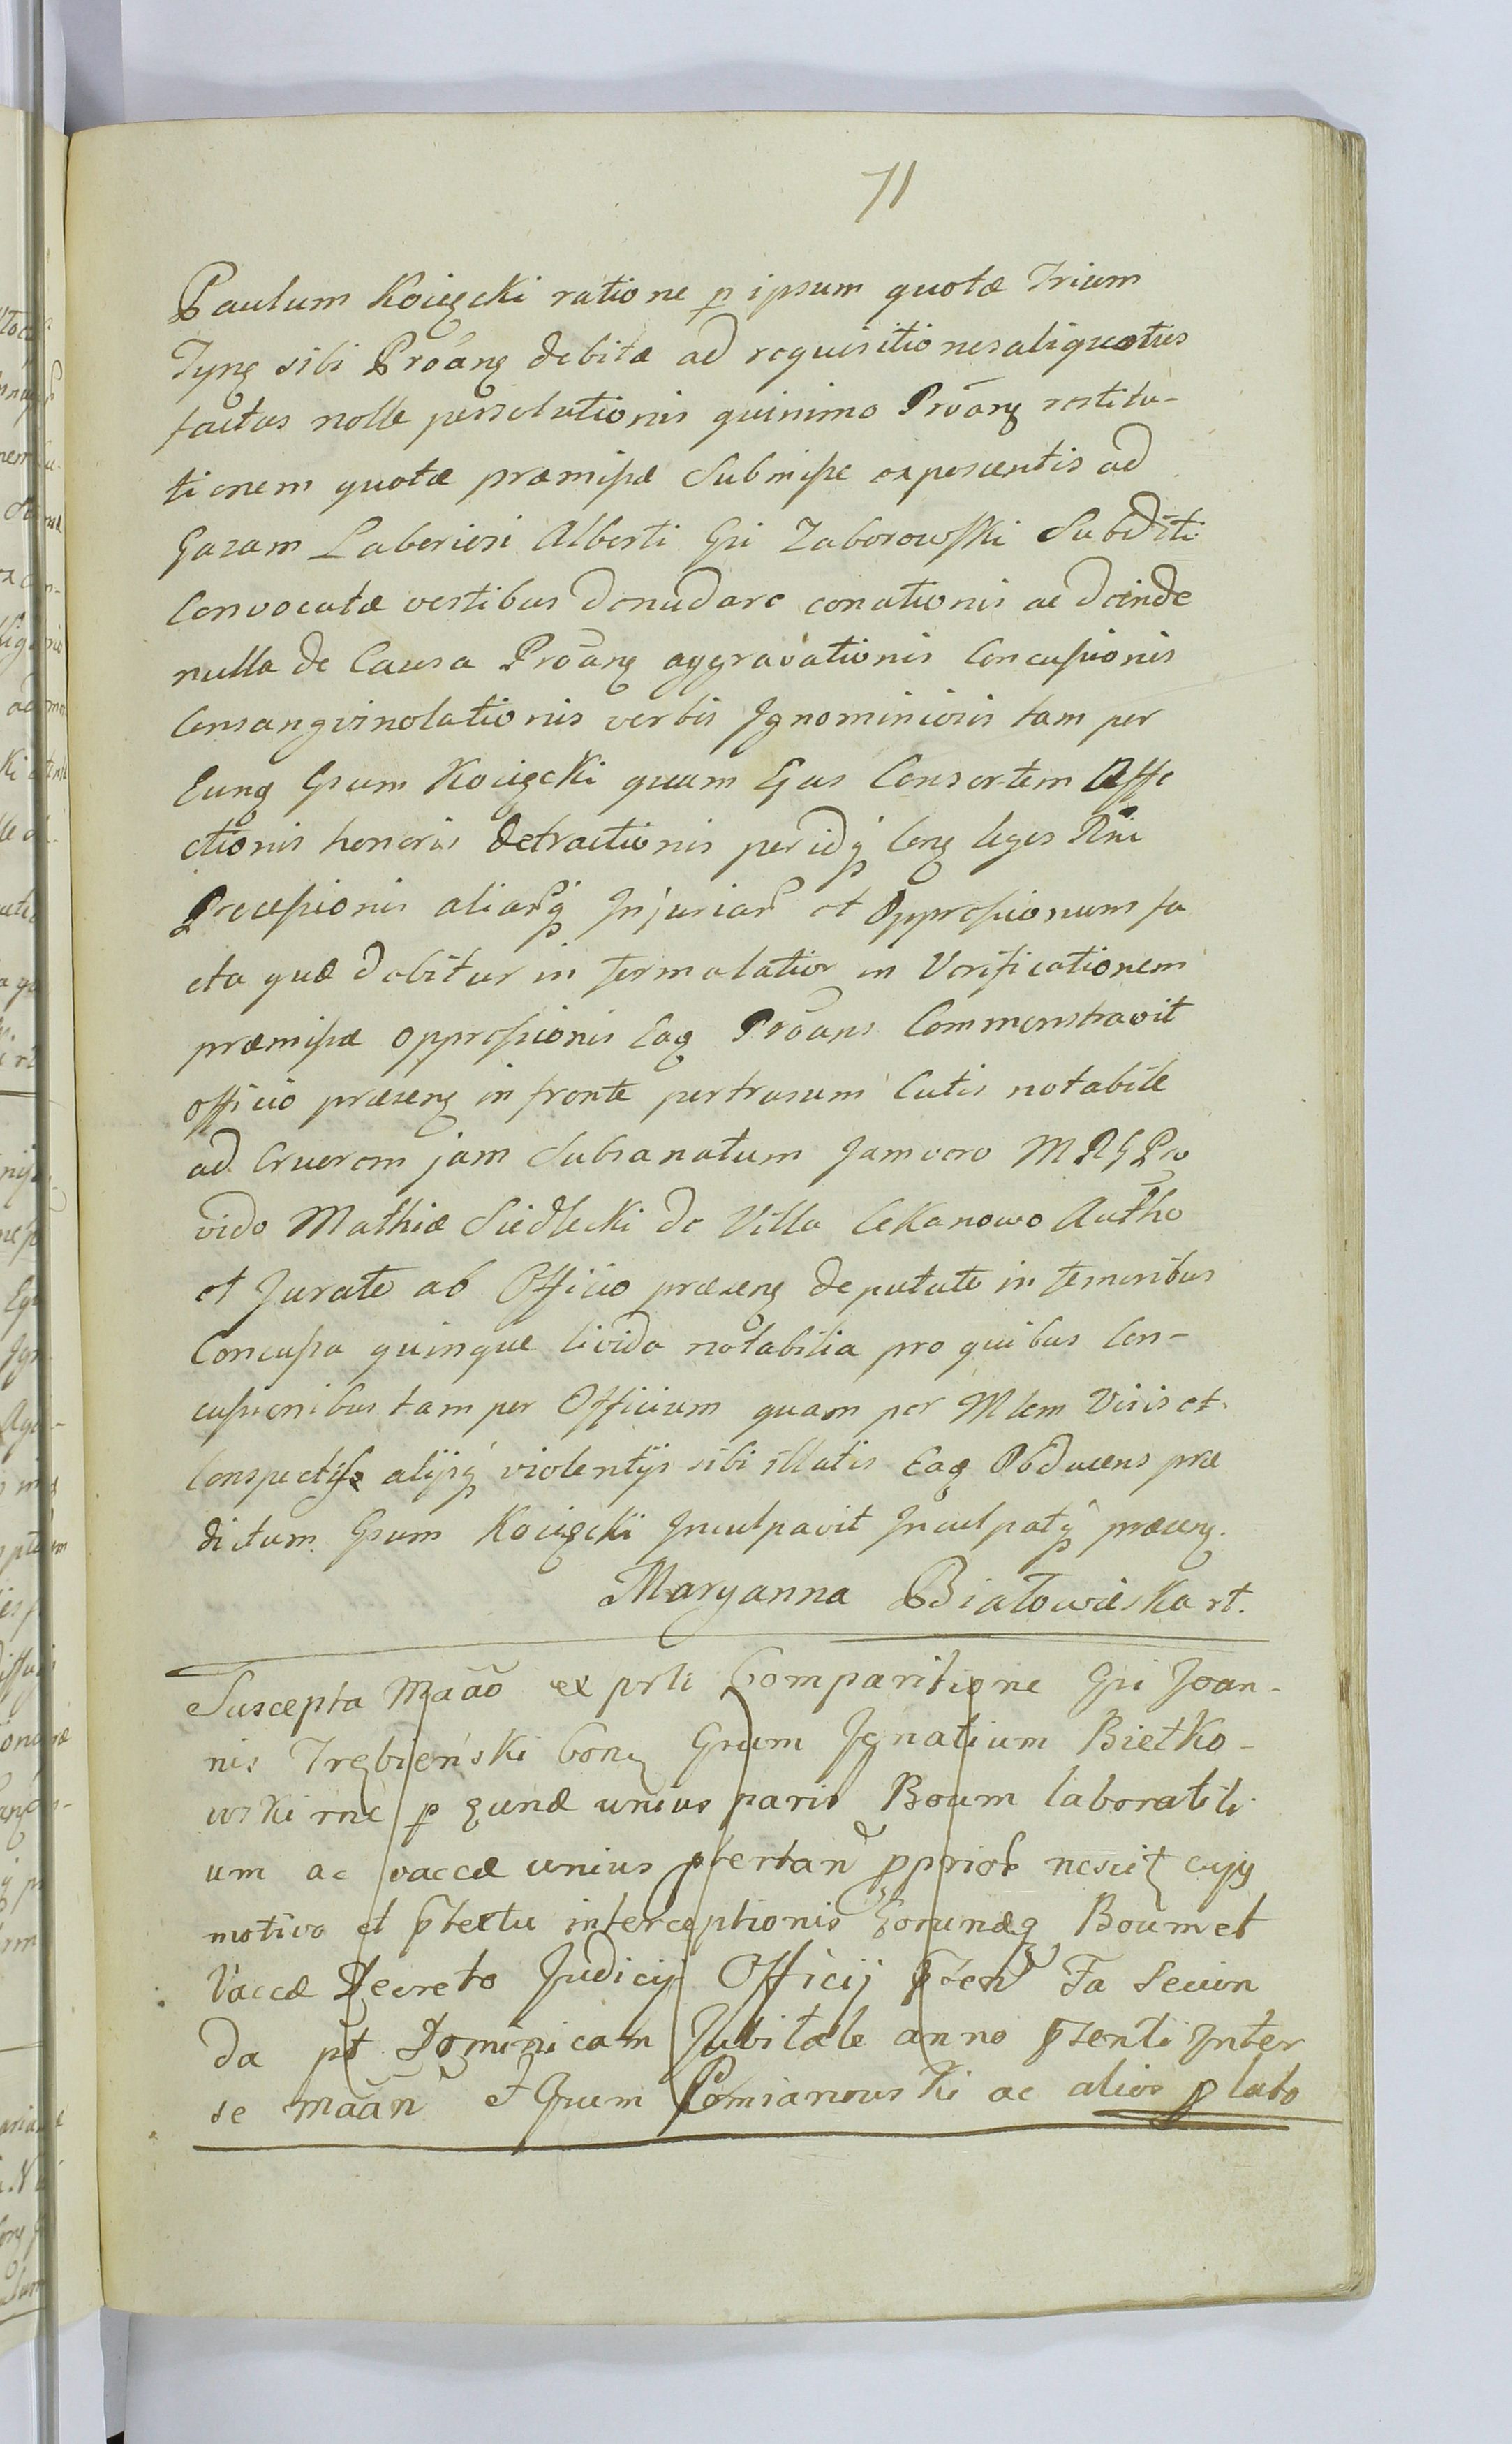 71
Paulum Kocięcki ratione p ipsum quotæ Trium
Tynę sibi Proãnę debitæ ad requisitiones aliquoties
factas nolle persolutionis quinimo Proãnę restitu-
tionem quotæ præmissæ submisse exposcentis ad
Gazam Laboriosi Alberti Gsi Zaborowski Subditi
Convocatæ vestibus denudare conationis ac deinde
nulla de Causa Proãnę aggravationis Concussionis
Consangvinolationis verbis Ignominiosis tam per
Eunq Gsum Kocięcki quam Ejus Consortem Affe
ctionis honoris detractionis per idq Conę leges Rni
Processionis aliarq Injuriar et Oppressionum fa
cta quæ dabitur in termo latior in Verificationem
præmissæ oppressionis Eaq Proãns Commonstravit
officio præsenę in fronte pertrasum Cutis notabile
ad Cruorem jam Subsanatum Jam vero M R G Pro
vido Mathiæ Siedlecki de Villa Cekanowo Autho
et Jurato ab Officio præsenę deputato in femoribus
Concussa quinque livida notabilia pro quibus Con-
cussionibus tam per Officium quam per Mlem Visis et
Conspectis alijsq violentijs sibi illatis Eaq Obducens præ
dictum Gsum Kocięcki Inculpavit Inculpatq præsenę.
Maryanna Białowieska rt.
Suscepta Maão ex prti Comparitione Gsi Joan-
nis Trębieński Conę Gsum Ignatium Bietko-
wski rne p eunđ unius paris Boum laboratili
um ac vaccæ unius ptertañ pprior nescitę cujq
motivo et ptextu interceptionis Eorundq Boum et
Vaccæ Decreto Judicij Officij pteñ Fa Secun
da pt Dominicam Jubilate anno psenti Inter
se maãn et Gsum Pomianowski ac alios p lato